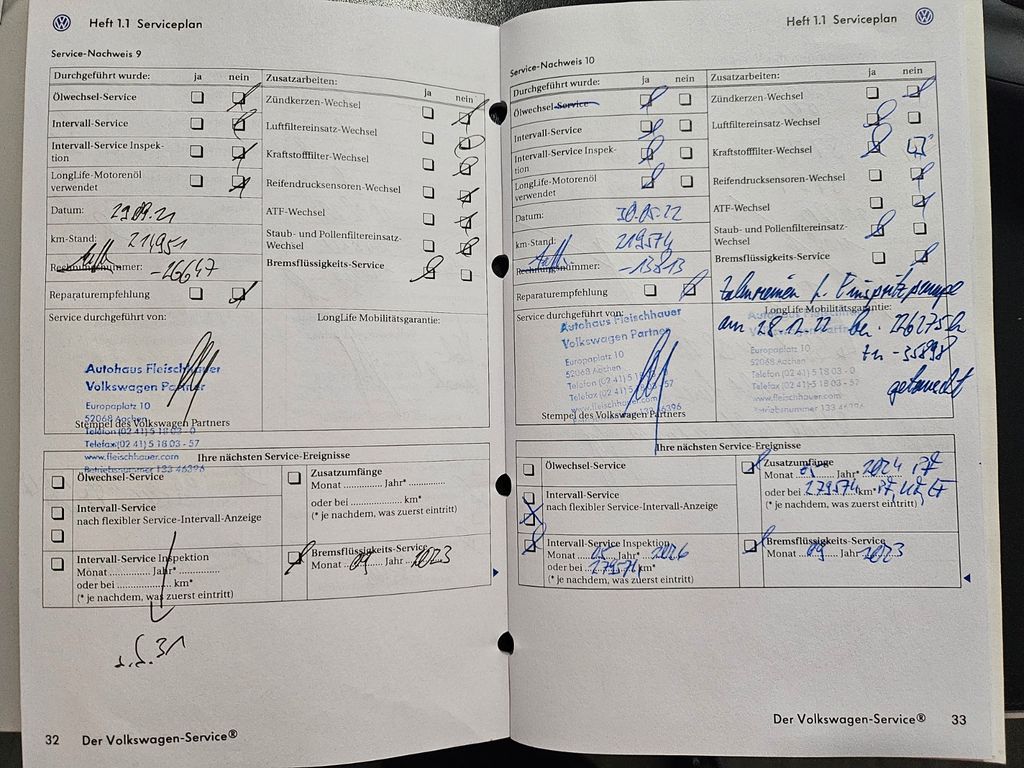 Heft 1.1 Serviceplan
Service-Nachweis 9
Durchgeführt wurde: ja nein
Ölwechsel-Service
Intervall-Service
Intervall-Service Inspek-
tion
LongLife-Motorenöl
verwendet
Datum: 29.09.21
km-Stand: 214951
Rechnungsnummer: -26647
Reparaturempfehlung
Zusatzarbeiten:
ja nein
Zündkerzen-Wechsel
Luftfiltereinsatz-Wechsel
Kraftstofffilter-Wechsel
Reifendrucksensoren-Wechsel
ATF-Wechsel
Staub- und Pollenfiltereinsatz-
Wechsel
Bremsflüssigkeits-Service
Service durchgeführt von:
LongLife Mobilitätsgarantie:
Autohaus Fleischhauer
Volkswagen Partner
Europaplatz 10
52068 Aachen
Telefon (02 41) 5 18 03 - 0
Stempel des Volkswagen Partners
Telefax (02 41) 5 18 03 - 57
www.fleischhauer.com
Betriebsnummer 133 46396
Ihre nächsten Service-Ereignisse
Ölwechsel-Service
Intervall-Service
nach flexibler Service-Intervall-Anzeige
Intervall-Service Inspektion
Monat ............ Jahr* ............
oder bei .................. km*
(* je nachdem, was zuerst eintritt)
Zusatzumfänge
Monat ............ Jahr* ............
oder bei .................. km*
(* je nachdem, was zuerst eintritt)
Bremsflüssigkeits-Service
Monat 09 Jahr 2023
s. S. 31
32 Der Volkswagen-Service®
Heft 1.1 Serviceplan
Service-Nachweis 10
Durchgeführt wurde: ja nein
Ölwechsel-Service
Intervall-Service
Intervall-Service Inspek-
tion
LongLife-Motorenöl
verwendet
Datum: 30.05.22
km-Stand: 219574
Rechnungsnummer: -13813
Reparaturempfehlung
Zusatzarbeiten: ja nein
Zündkerzen-Wechsel
Luftfiltereinsatz-Wechsel
Kraftstofffilter-Wechsel
Reifendrucksensoren-Wechsel
ATF-Wechsel
Staub- und Pollenfiltereinsatz-
Wechsel
Bremsflüssigkeits-Service
Zahnriemen f. Einspritzpumpe
am 28.12.22 bei 226275 km
-35898
getauscht
Service durchgeführt von:
LongLife Mobilitätsgarantie:
Autohaus Fleischhauer
Volkswagen Partner
Europaplatz 10
52068 Aachen
Telefon (02 41) 5 18 03 - 0
Telefax (02 41) 5 18 03 - 57
www.fleischhauer.com
Betriebsnummer 133 46396
Stempel des Volkswagen Partners
Ihre nächsten Service-Ereignisse
Ölwechsel-Service
Intervall-Service
nach flexibler Service-Intervall-Anzeige
Intervall-Service Inspektion
Monat 05 Jahr* 2026
oder bei 279574 km*
(* je nachdem, was zuerst eintritt)
Zusatzumfänge
Monat 05 Jahr* 2024
oder bei 279574 km*
(* je nachdem, was zuerst eintritt)
Bremsflüssigkeits-Service
Monat 09 Jahr 2023
Der Volkswagen-Service® 33